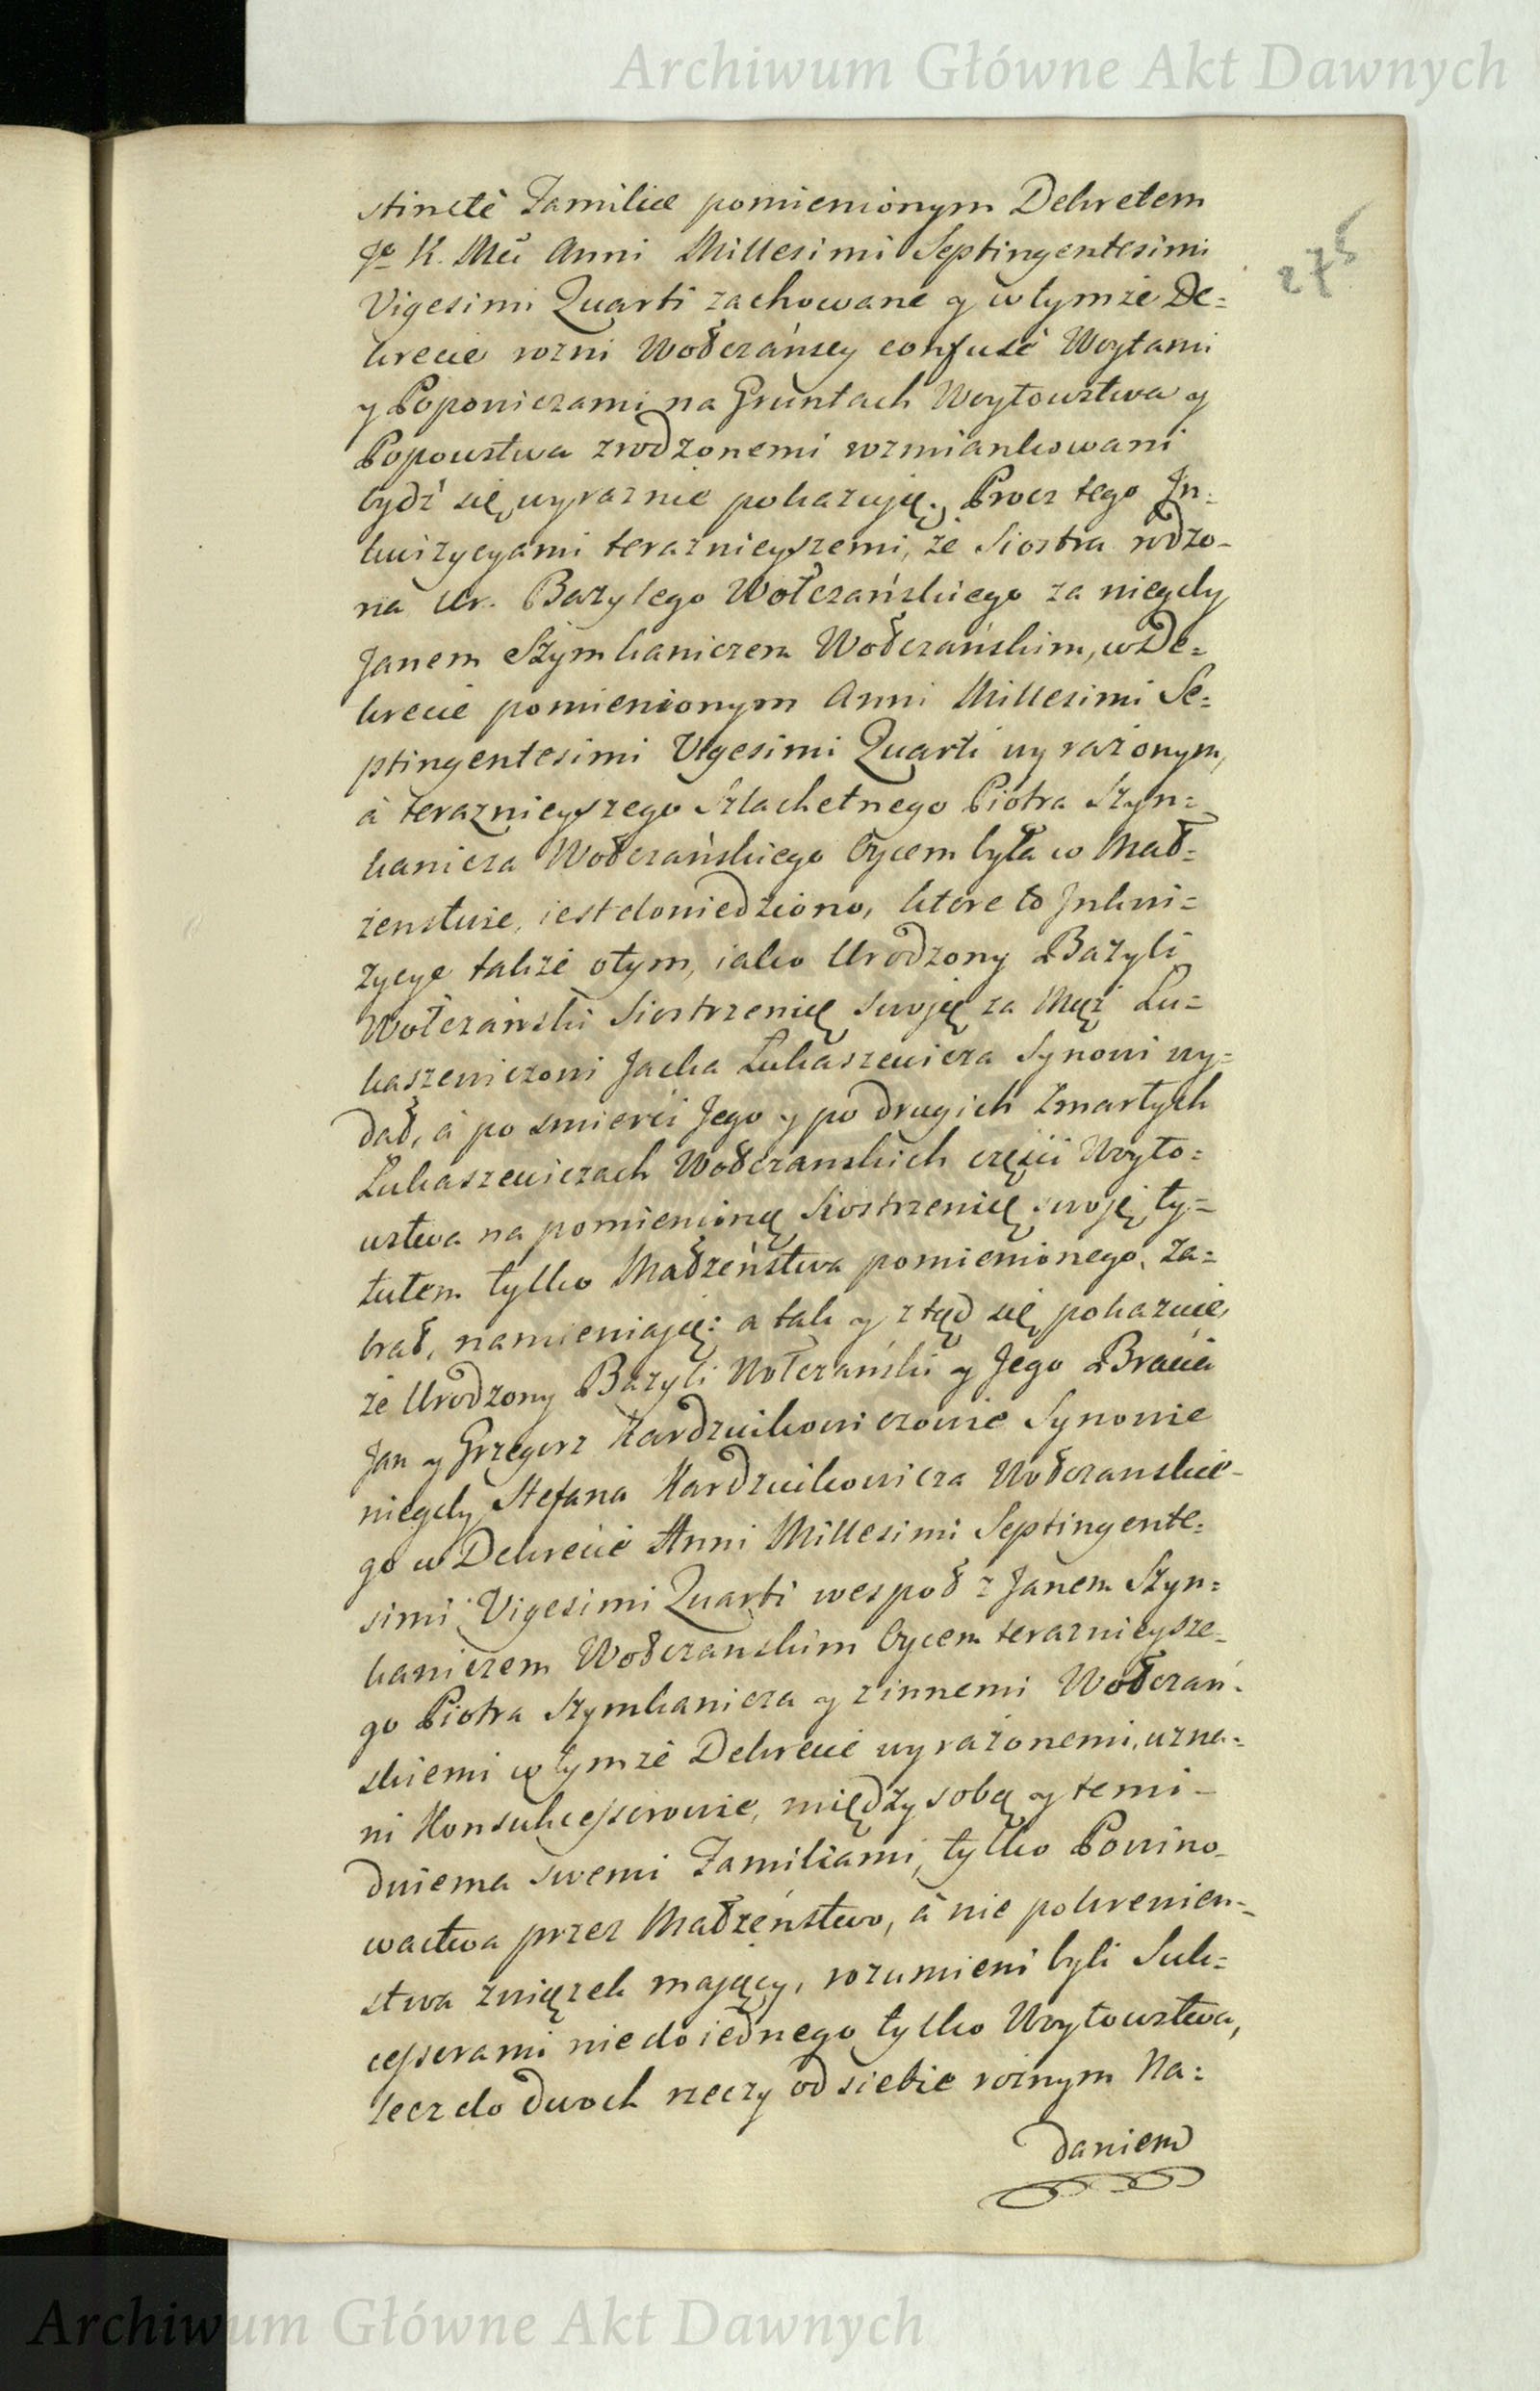 Archiwum Główne Akt Dawnych
stinctè Familiæ pomienionym Dekretem
Jº K. Mci Anni Millesimi Septingentesimi
Vigesimi Quarti zachowane y w tymże De=
krecie rozni Wołczańscy confusè Woytami
y Poponiczami na Gruntach Woytowstwa y
Popowstwa zrodzonemi wzmiankowani
bydź się wyraznie pokazuią. Procz tego In=
kwizycyami teraznieyszemi, że Siostra rodzo-
na Ur. Bazylego Wołczańskiego za niegdy
Janem Szymkaniczem Wołczańskim, w De=
krecie pomienionym Anni Millesimi Se=
ptingentesimi Vigesimi Quarti wyrażonym,
à teraznieyszego Szlachetnego Piotra Szyn=
kanicza Wołczańskiego Oycem była w Mał=
żenstwie, iest dowiedziono, ktore to Inkwi=
zycye także o tym, iako Urodzony Bazyli
Wołczański Siostrzenicę swoję za Mąż Lu=
kaszewiczowi Jacka Lukaszewicza Synowi wy=
dał, à po smierci Jego y po drugich zmarłych
Lukaszewiczach Wołczanskich części Woyto=
wstwa na pomienioną Siostrzenicę swoję ty=
tułem tylko Małżeństwa pomienionego, za=
brał, namieniaią: a tak y ztąd się pokazuie,
że Urodzony Bazyli Wołczański y Jego Bracia
Jan y Grzegorz Kardzwikowiczowie Synowie
niegdy Stefana Kardzwikowicza Wołczanskie-
go w Dekrecie Anni Millesimi Septingente=
simi Vigesimi Quarti wespoł z Janem Szyn=
kaniczem Wołczanskim Oycem teraznieysze-
go Piotra Szymkanicza y z innemi Wołczań-
skiemi w tymże Dekrecie wyrażonemi, uzna-
ni Konsukcessorowie, między sobą y temi-
dwiema swemi Familiami, tylko Powino-
wactwa przez Małżeństwo, à nie pokrewien=
stwa związek maiący, rozumieni byli Suk=
cessorami nie do iednego tylko Woytowstwa,
lecz do dwoch rzeczy od siebie roznym Na=
daniem
275
Archiwum Główne Akt Dawnych